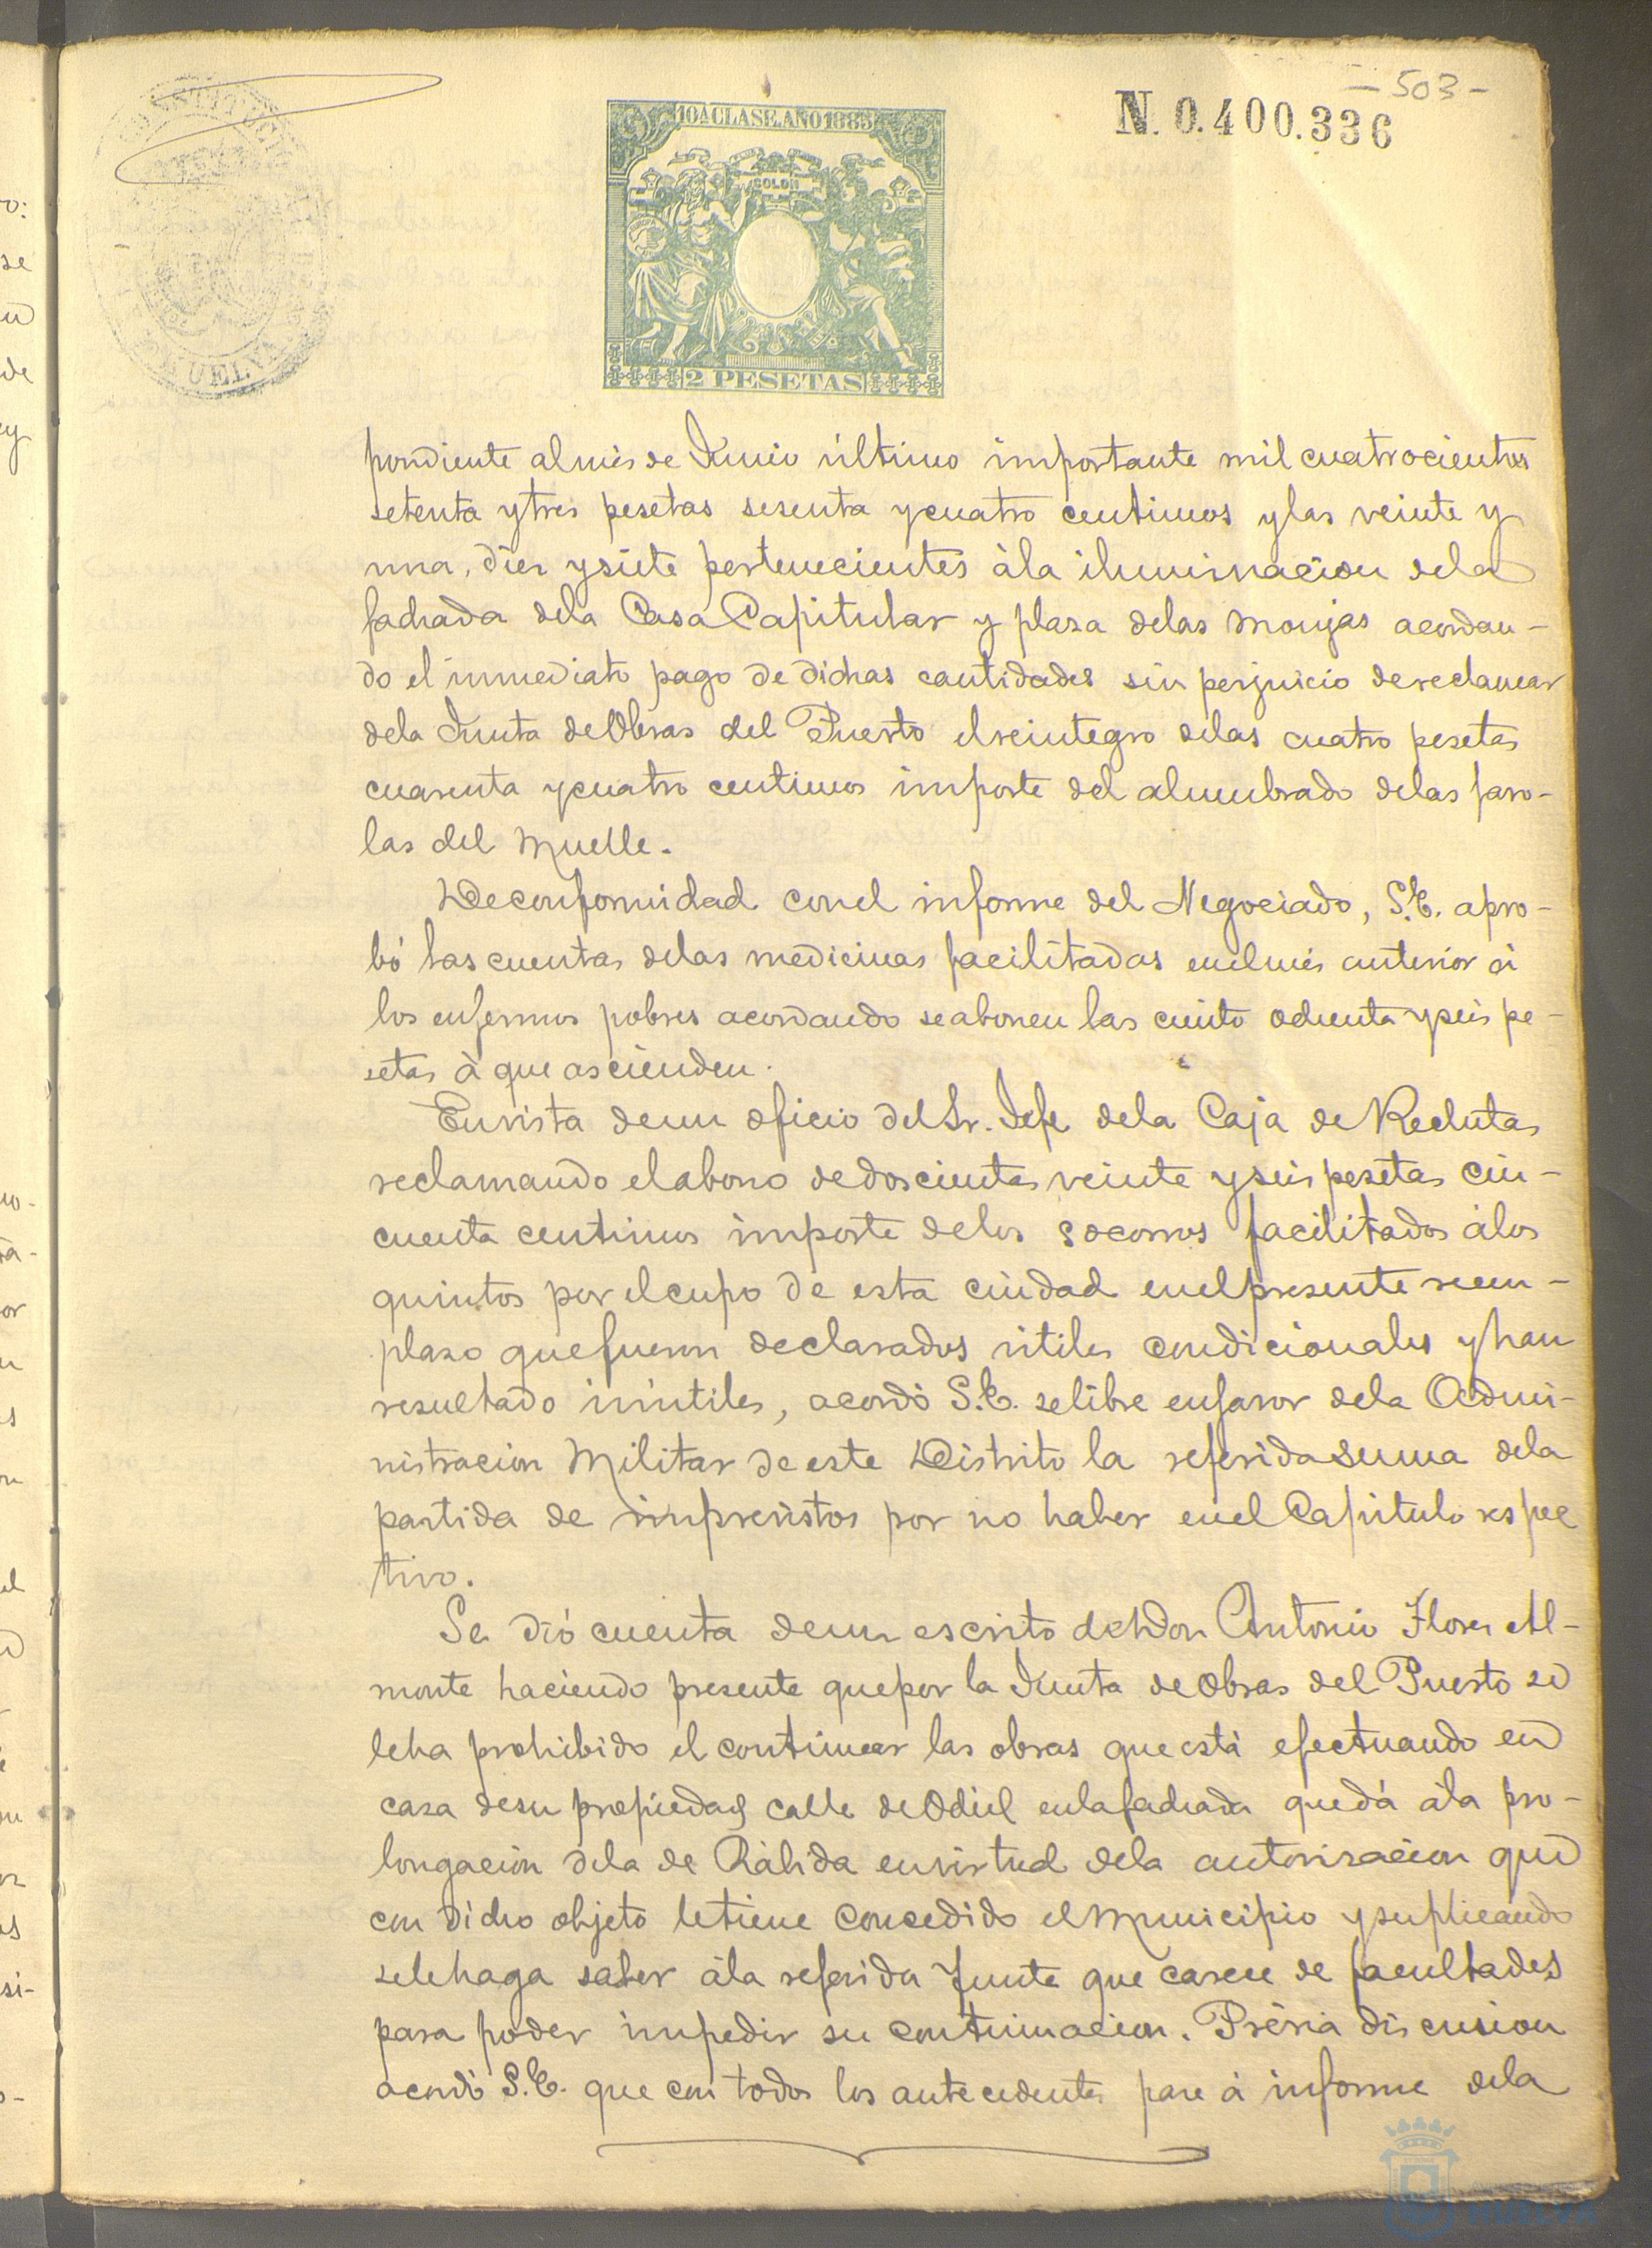 -503-
N. 0.400.336
CONSTITUCIO
HUELVA
10ª CLASE. AÑO 1885
COLON
2 PESETAS
pondiente al més de Junio último importante mil cuatrocientos
setenta y tres pesetas sesenta y cuatro centimos y las veinte y
una, diez y siete pertenecientes à la iluminacion de la
fachada de la Casa Capitular y plaza de las Monjas acordan-
do el inmediato pago de dichas cantidades sin perjuicio de reclamar
de la Junta de Obras del Puerto el reintegro de las cuatro pesetas
cuarenta y cuatro centimos importe del alumbrado de las faro-
las del Muelle.
De conformidad con el informe del Negociado, S.E. apro-
bó las cuentas de las medicinas facilitadas en el més anterior à
los enfermos pobres acordando se abonen las ciento ochenta y seis pe-
setas à que ascienden.
En vista de un oficio del Sr. Jefe de la Caja de Reclutas
reclamando el abono de doscientas veinte y seis pesetas cin-
cuenta centimos importe de los socorros facilitados à los
quintos por el cupo de esta ciudad en el presente reem-
plazo que fueron declarados útiles condicionales y han
resultado inútiles, acordó S.E. se libre en favor de la Admi-
nistracion Militar de este Distrito la referida suma de la
partida de imprevistos por no haber en el Capitulo respec
tivo.
Se dió cuenta de un escrito de Don Antonio Flores Al-
monte haciendo presente que por la Junta de Obras del Puerto se
le ha prohibido el continuar las obras que está efectuando en
casa de su propiedad calle de Odiel en la fachada que dá à la pro-
longación de la de Rábida en virtud de la autorizacion que
con dicho objeto le tiene concedido el Municipio y suplicando
se le haga saber à la referida Junta que carece de facultades
para poder impedir su continuacion. Prévia discusion
acordó S.E. que con todos los antecedentes pase à informe de la
HUELVA